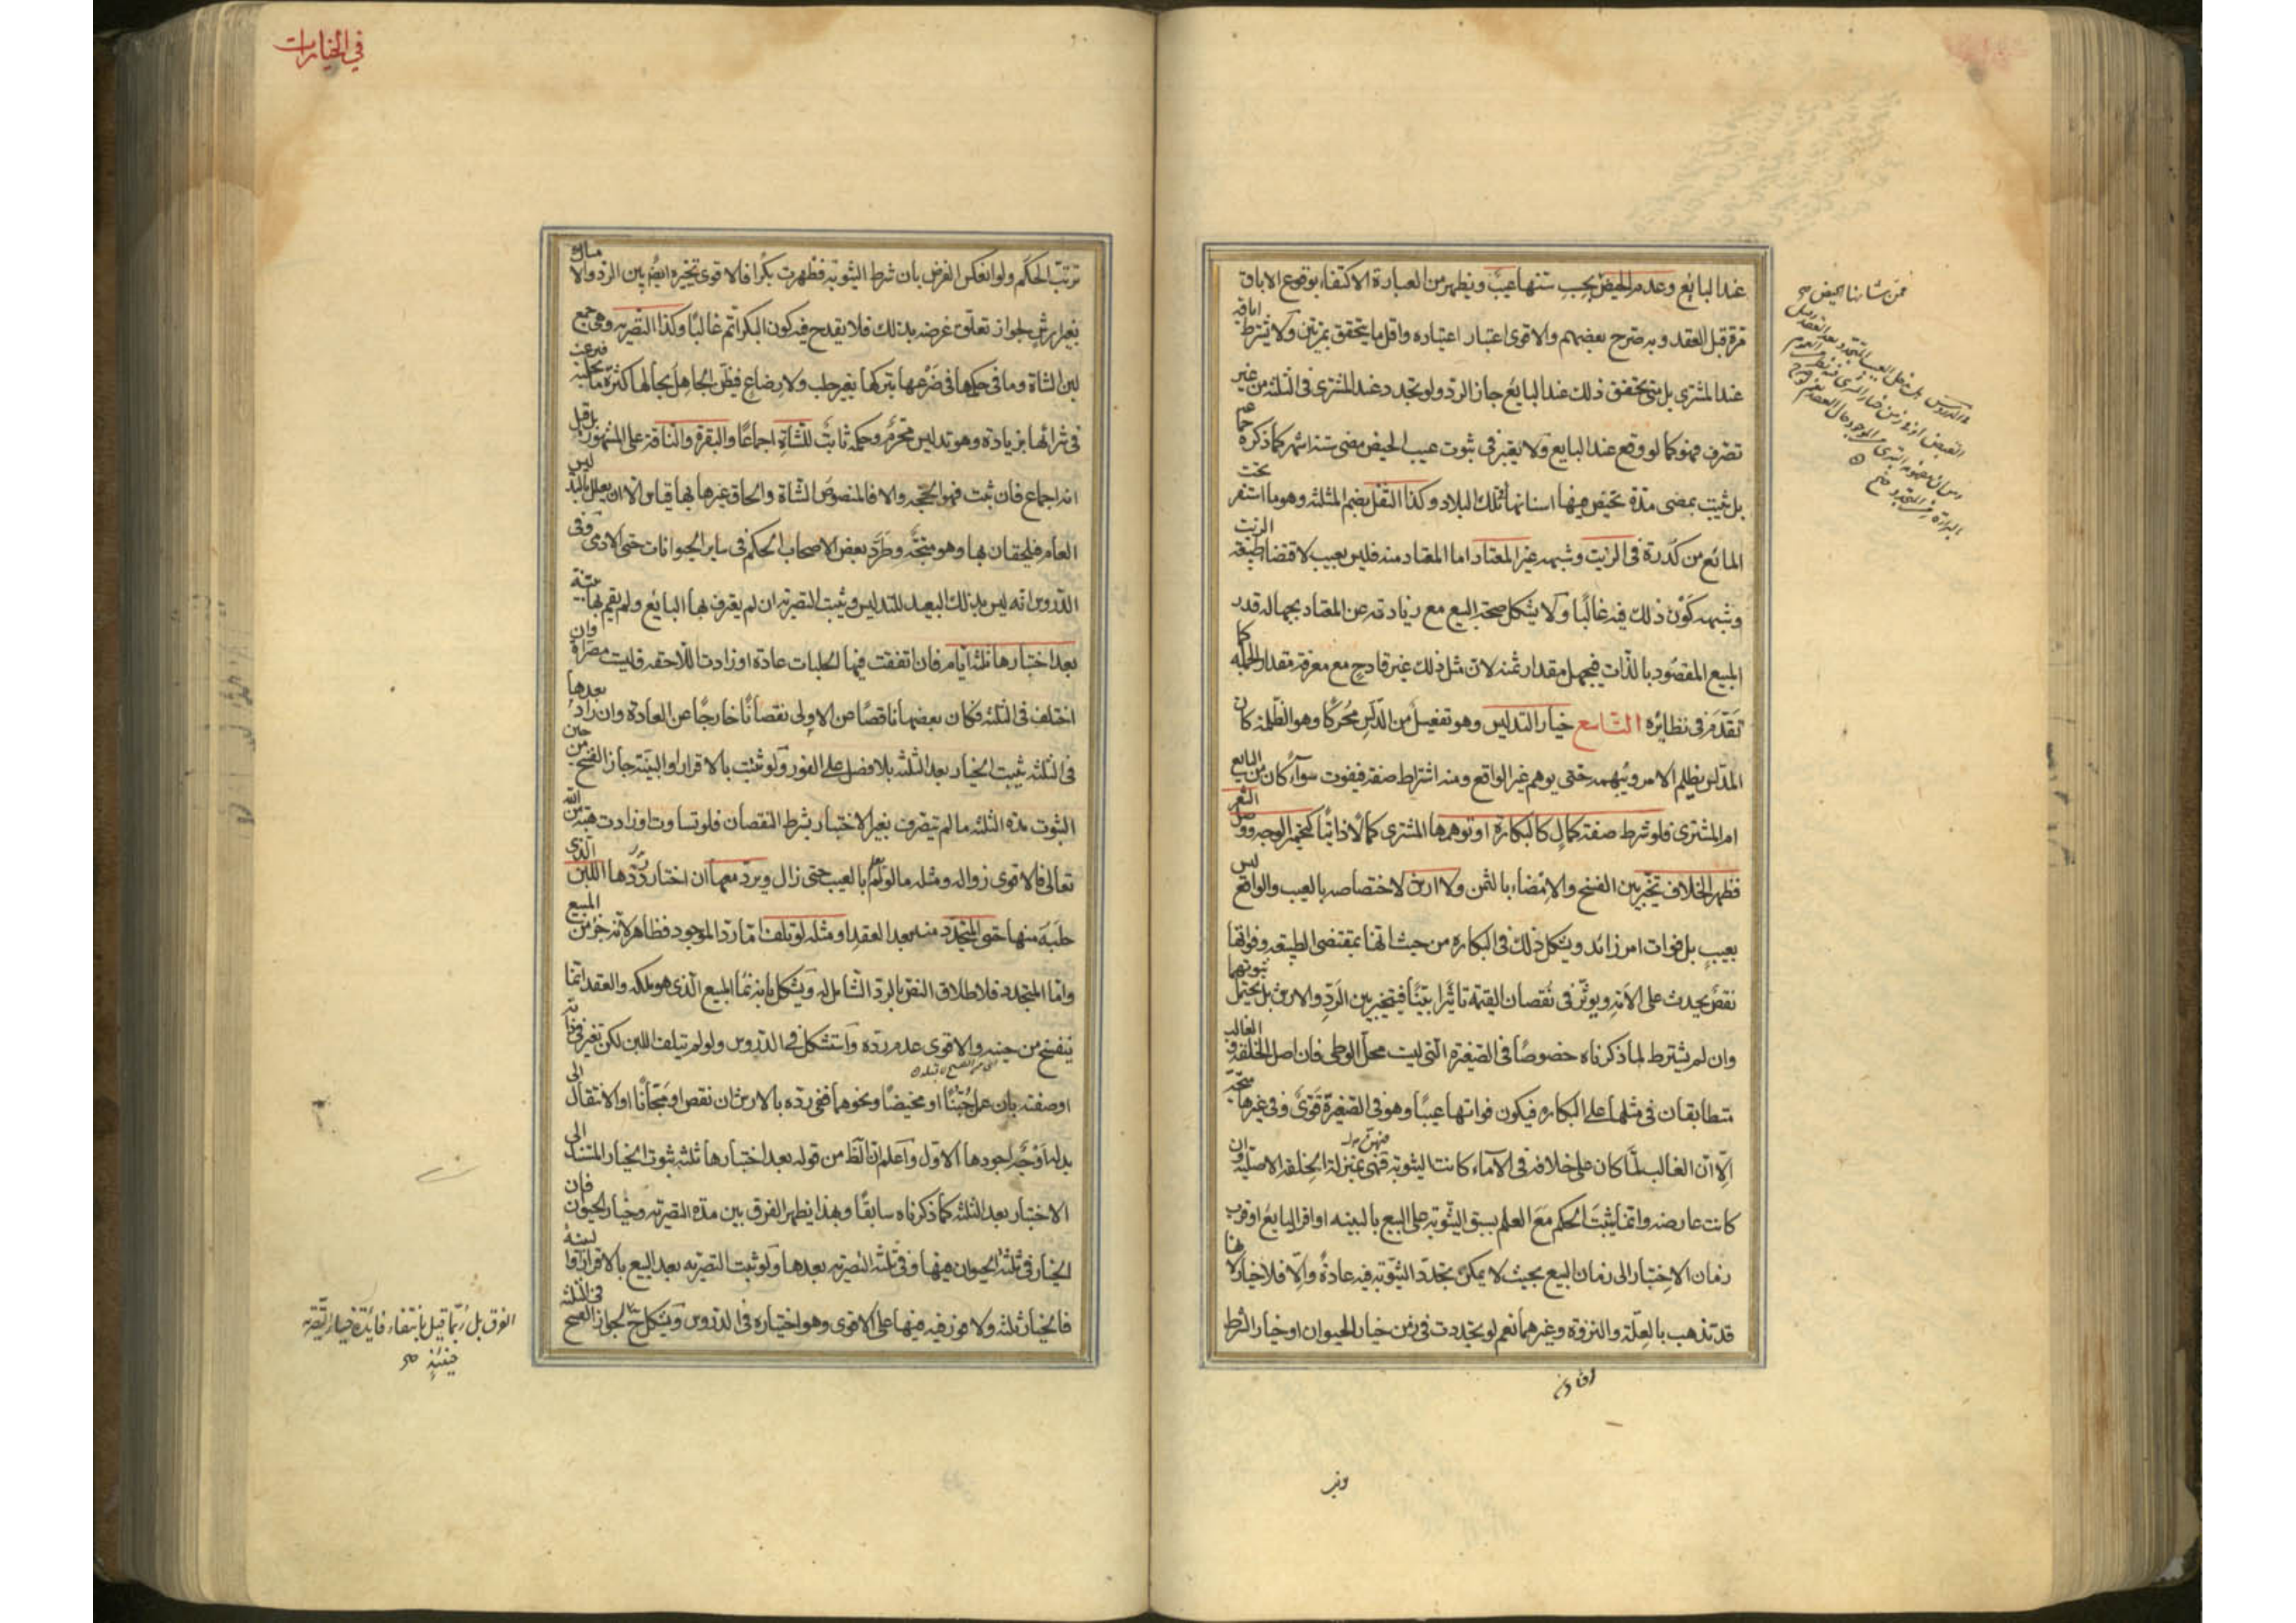 عند البايع وعدم الحيض ممن شأنها الحيض بحسب سنها عيب ويظهر من العبارة الاكتفاء بوقوع الاباق
مرة قبل العقد وبه صرح بعضهم والاقوى اعتبار اعتياده واقل ما يتحقق بمرتين ولا يشترط اباقه
عند المشتري بل متى تحقق ذلك عند البايع جاز الرد ولو تجدد عند المشتري في الثلثة من غير
تصرف فهو كما لو وقع عند البايع ولا يعتبر في ثبوت عيب الحيض مضي ستة اشهر كما ذكره جماعة
بل يثبت بمضي مدة تحيض فيها اسنانها في تلك البلاد وكذا الثفل بضم المثلثة وهو ما استقر تحت
المائع من كدرة في الزيت وشبهه غير المعتاد اما المعتاد منه فليس بعيب لاقتضاء طبيعة الزيت
وشبهه كون ذلك فيه غالبا ولا يشكل صحة البيع مع زيادته عن المعتاد بجهالة قدر
المبيع المقصود بالذات فيجهل مقدار ثمنه لان مثل ذلك غير قادح مع معرفة مقدار الجملة كما
تقدم في نظائره التاسع خيار التدليس وهو تفعيل من الدلس محركا وهو الظلمة كان
المدلس يظلم الامر ويبهمه حتى يوهم غير الواقع ومنه اشتراط صفة فيفوت سواء كان من البايع
ام المشتري فلو شرط صفة كمال كالبكارة او توهمها المشتري كمالا ذاتيا كتحمير الوجه ووصل الشعر
فظهر الخلاف تخير بين الفسخ والامضاء بالثمن ولا ارش لاختصاصه بالعيب والواقع ليس
بعيب بل فوات امر زائد ويشكل ذلك في البكارة من حيث انها بمقتضى الطبيعة وفواتها
نقص يحدث على الامة ويؤثر في نقصان القيمة تاثيرا بينا فيتخير بين الرد والارش بل يحتمل ثبوتهما
وان لم يشترط لما ذكرناه خصوصا في الصغيرة التي ليست محل الوطي فان اصل الخلقة والغالب
متطابقان في مثلها على البكارة فيكون فواتها عيبا وهو في الصغيرة قوي وفي غيرها متجه
الا ان الغالب لما كان على خلافه في الاماء كانت الثيوبة فيهن بمنزلة الخلقة الاصلية وان
كانت عارضة وانما يثبت الحكم مع العلم بسبق الثيوبة على البيع بالبينة او اقرار البايع او قرب
زمان الاختبار الى زمان البيع بحيث لا يمكن تجدد الثيوبة فيه عادة والا فلا خيار لانها
قد تذهب بالعلة والنزوة وغيرهما نعم لو تجددت في زمن خيار الحيوان او خيار الشرط
في الخيارات
ترتب الحكم ولو انعكس الفرض بان شرط الثيوبة فظهرت بكرا فالاقوى تخيره ايضا بين الرد والامساك
بغير ارش لجواز تعلق غرضه بذلك فلا يقدح فيه كون البكر اتم غالبا وكذا التصرية وهي جمع
لبن الشاة وما في حكمها في ضرعها بتركها بغير حلب ولا رضاع فيظن الجاهل بحالها كثرة ما تحلبه فيرغب
في شرائها بزيادة وهو تدليس محرم وحكمه ثابت للشاة اجماعا والبقرة والناقة على المشهور بل قيل
انه اجماع فان ثبت فهو الحجة والا فالمنصوص الشاة والحاق غيرها بها قياس الا ان يعلل بالتدليس
العام فيلحقان بها وهو متجه وطرد بعض الاصحاب الحكم في سائر الحيوانات حتى الادمي وفي
الدروس انه ليس بذلك البعيد للتدليس ويثبت التصرية ان لم يعترف بها البايع ولم يقم بها بينة
بعد اختبارها ثلثة ايام فان اتفقت فيها الحلبات عادة او زادت اللاحقة فليست مصراة وان
اختلف في الثلثة فكان بعضها ناقصا عن الاولى نقصانا خارجا عن العادة وان زاد بعدها
في الثلثة ثبت الخيار بعد الثلثة بلا فصل على الفور ولو ثبت بالاقرار او البينة جاز الفسخ من حين
الثبوت مدة الثلثة ما لم يتصرف بغير الاختبار بشرط النقصان فلو تساوت او زادت هبة من الله
تعالى فالاقوى زواله ومثله ما لو لم يعلم بالعيب حتى زال ويرد معها ان اختار ردها اللبن الذي
حلبه منها حتى المتجدد منه بعد العقد او مثله لو تلف اما رد الموجود فظاهر لانه جزء من المبيع
واما المتجدد فلاطلاق النص بالرد الشامل له ويشكل بانه نماء المبيع الذي هو ملكه والعقد انما
ينفسخ من حينه والاقوى عدم رده واستشكل في الدروس ولو لم يتلف اللبن لكن تغير في ذاته
او صفته بان عمل جبنا او مخيضا ونحوهما ففي رده بالارش ان نقص او مجانا او الانتقال الى
بدله اوجه اجودها الاول واعلم ان الظ من قوله بعد اختبارها ثلثة ثبوت الخيار المستند الى
الاختبار بعد الثلثة كما ذكرناه سابقا وبهذا يظهر الفرق بين مدة التصرية وخيار الحيوان فان
الخيار في ثلثة الحيوان فيها وفي ثلثة التصرية بعدها ولو ثبت التصرية بعد البيع بالاقرار او البينة
فالخيار ثلثة ولا فور فيه فيها على الاقوى وهو اختياره في الدروس ويشكل ح الفرق بل ربما قيل بانتفاء فائدة خيار التصرية حينئذ صح لجواز الفسخ في الثلثة